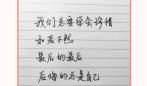 我们总要学会珍惜
如若不然
最后的最后
后悔的总是自己